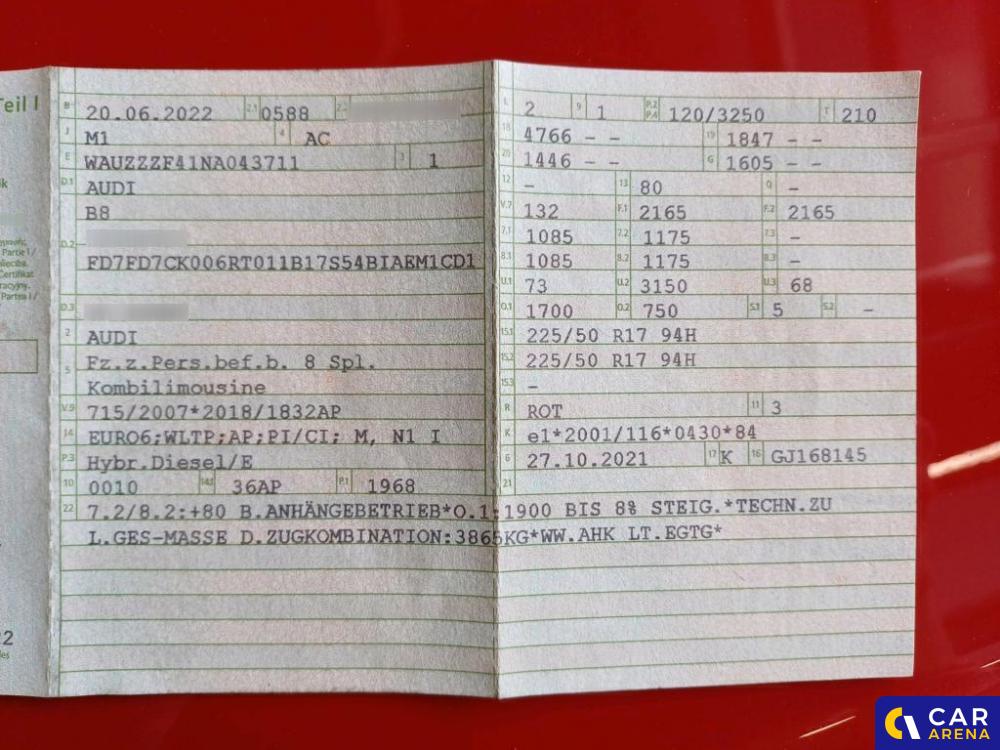 Teil I
B 20.06.2022 2.1 0588 2.2
J M1 4 AC
E WAUZZZF41NA043711 3 1
D.1 AUDI
B8
D.2
FD7FD7CK006RT011B17S54BIAEM1CD1
D.3
2 AUDI
5 Fz.z.Pers.bef.b. 8 Spl.
Kombilimousine
V.9 715/2007*2018/1832AP
14 EURO6;WLTP;AP;PI/CI; M, N1 I
P.3 Hybr.Diesel/E
10 0010 14.1 36AP P.1 1968
L 2 9 1 P.2 P.4 120/3250 T 210
18 4766 - - 19 1847 - -
20 1446 - - G 1605 - -
12 - 13 80 Q -
V.7 132 F.1 2165 F.2 2165
7.1 1085 7.2 1175 7.3 -
8.1 1085 8.2 1175 8.3 -
U.1 73 U.2 3150 U.3 68
O.1 1700 O.2 750 S.1 5 S.2 -
15.1 225/50 R17 94H
15.2 225/50 R17 94H
15.3 -
R ROT 11 3
K e1*2001/116*0430*84
6 27.10.2021 17 K 16 GJ168145
21
22 7.2/8.2:+80 B.ANHÄNGEBETRIEB*O.1:1900 BIS 8% STEIG.*TECHN.ZU
L.GES-MASSE D.ZUGKOMBINATION:3865KG*WW.AHK LT.EGTG*
CAR
ARENA